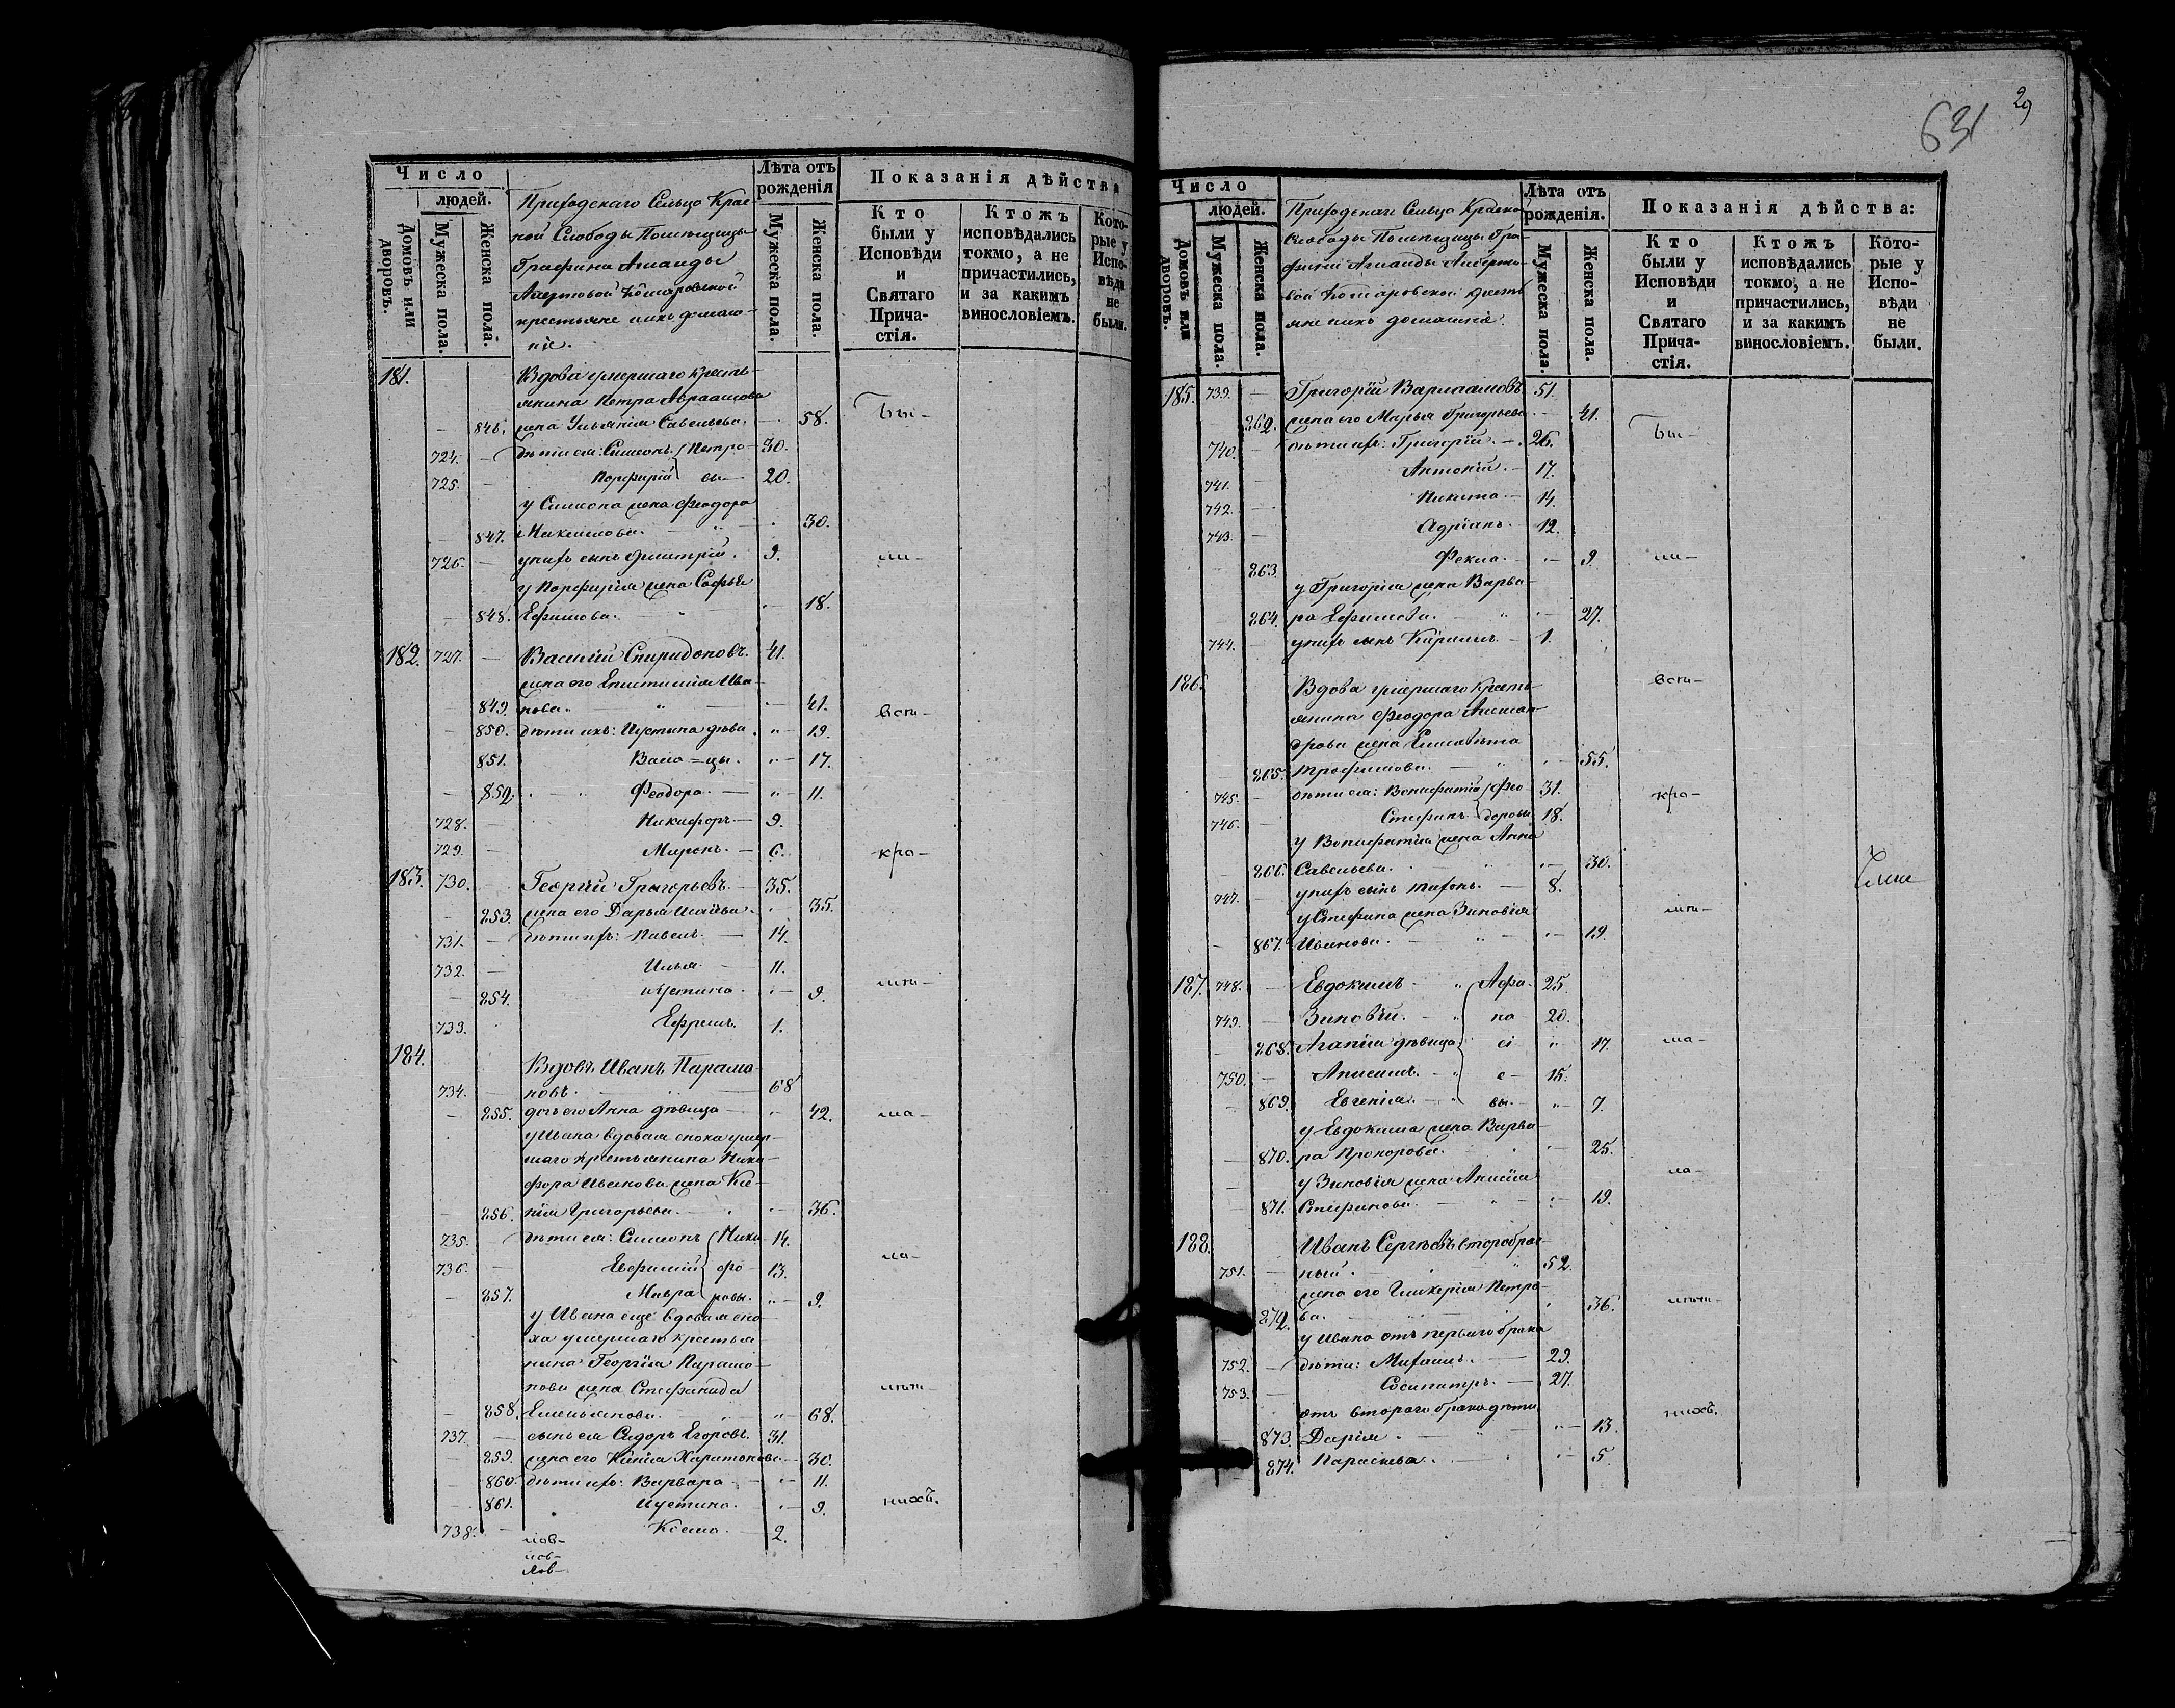 Число
людей.
Домовъ или дворовъ.
Мужеска пола.
Женска пола.
Приходскаго Сельца Крас-
ной Слободы Помѣщицы
Графини Аманды
Комаровской
крестьяне ихъ домаш-
ніе.
Лѣта отъ рожденія
Мужеска пола.
Женска пола.
Показанія дѣйства
Кто были у Исповѣди и Святаго Прича-стія.
Ктожъ исповѣдались токмо, а не причастились, и за какимъ винословіемъ.
Кото-рые у Испо-вѣди не были.
181. Вдова умершаго кресть-
янина Петра Авраамова
846. жена Ульянія Савельева. 58. Бы-
724. дѣти ея: Симеонъ Петро- 30.
725. Порфирій вы 20.
у Симеона жена Феодора
847. Максимова. 30.
726. у нихъ сынъ Димитрій. 9. ли-
у Порфирія жена Софья
848. Ефимова. 18.
182. 727. Василій Спиридоновъ. 41.
жена его Епистимія Ива-
849. нова. 41. всѣ-
850. дѣти ихъ: Иустина дѣви 19.
851. Васса цы. 17.
852. Феодора. 11.
728. Никифоръ 9.
729. Миронъ. 6. кро-
183. 730. Георгій Григорьевъ. 35.
853. жена его Дарья Исаева. 35.
731. дѣти ихъ: Павелъ 14.
732. Илья. 11.
854. Иустина. 9. мѣ-
733. Ефремъ. 1.
184. Вдовъ Иванъ Парамо-
734. новъ. 68
855. дочь его Анна дѣвица 42. ма-
у Ивана вдовая сноха умер-
шаго крестьянина Ники-
фора Иванова жена Ксе-
856. нія Григорьева. 36.
735. дѣти ея: Симеонъ Ники 14.
736. Евфимій фо 13. ло-
857. Мавра ровы. 9.
у Ивана еще вдовая сно-
ха умершаго крестья-
нина Георгія Парамо-
нова жена Стефанида
858. Емельянова. 68. лѣт-
737. сынъ ея Сидоръ Егоровъ. 31.
859. жена его Ксенія Харитонова 30.
860. дѣти ихъ: Варвара 11.
861. Иустина. 9. нихъ.
738. Косма. 2.
631
29
Число
людей.
Домовъ или дворовъ.
Мужеска пола.
Женска пола.
Приходскаго Сельца Красной
Слободы Помѣщицы Гра-
фини Аманды
Комаровской кресть
яне ихъ домашніе.
Лѣта отъ рожденія.
Мужеска пола.
Женска пола.
Показанія дѣйства:
Кто были у Исповѣди и Святаго Прича-стія.
Ктожъ исповѣдались токмо, а не причастились, и за какимъ винословіемъ.
Кото-рые у Испо-вѣди не были.
185. 739. Григорій Варлаамовъ 51.
862. жена его Марья Григорьева 41. Бы-
740. дѣти ихъ: Григорій 26.
741. Антоній. 17.
742. Никита 14.
743. Адріанъ. 12.
863. Фекла. 9. ли-
у Григорія жена Варва-
864. ра Ефимова. 27.
744. у нихъ сынъ Кириллъ. 1.
186. Вдова умершаго кресть- всѣ-
янина Феодора Алексан-
дрова жена Елисавета
865. Трофимова. 55.
745. дѣти ея: Вонифатій Фео- 31. кро-
746. Стефанъ доровы 18.
у Вонифатія жена Анна
866. Савельева. 30.
747. у нихъ сынъ Тихонъ. 8.
у Стефана жена Зиновія мѣ-
867. Иванова. 19.
187. 748. Евдокимъ Афа- 25.
749. Зиновій. на 20.
868. Агапія дѣвица сі 17. ма-
750. Анисимъ. е 15.
869. Евгенія. вы. 7.
у Евдокима жена Варва-
870. ра Прохорова. 25.
у Зиновія жена Анисія ло-
871. Стефанова. 19.
188. Иванъ Сергѣевъ второбрач-
751. ный. 52.
жена его Гликерія Петро-
872. ва. 36. лѣт-
у Ивана отъ перваго брака
752. дѣти: Михаилъ. 29.
753. Сосипатръ. 27.
отъ втораго брака дѣти нихъ.
873. Дарія. 13.
874. Параскева. 5.